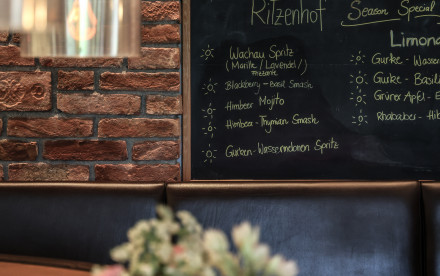 Ritzenhof
Season Special
Wachau Spritz
(Marille / Lavendel /
Blackberry - Basil Smash
Himbeer Mojito
Himbeer - Thymian Smash
Gurken - Wassermelonen Spritz
Limona
Gurke - Wasse
Gurke - Basil
Grüner Apfel - E
Rhabarber - Hib